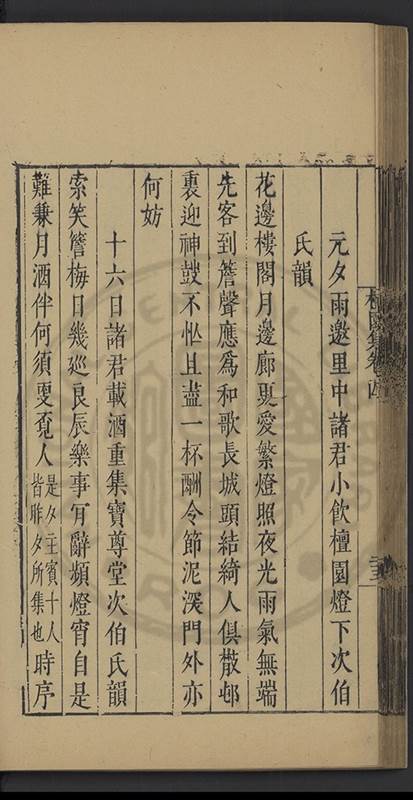 元夕雨邀里中諸君小飲檀園燈下次伯
氏韻
花邊樓閣月邊廊更愛繁燈照夜光雨氣無端
先客到簷聲應爲和歌長城頭結綺人俱散邨
裏迎神鼓不怂且盡一杯酬令節泥深門外亦
何妨
十六日諸君載酒重集寶尊堂次伯氏韻
索笑簷梅日幾廵良辰樂事肎辭頻燈宵自是
難兼月酒伴何須更覔人
是夕主賓十人
皆昨夕所集也
時序
檀園集卷四